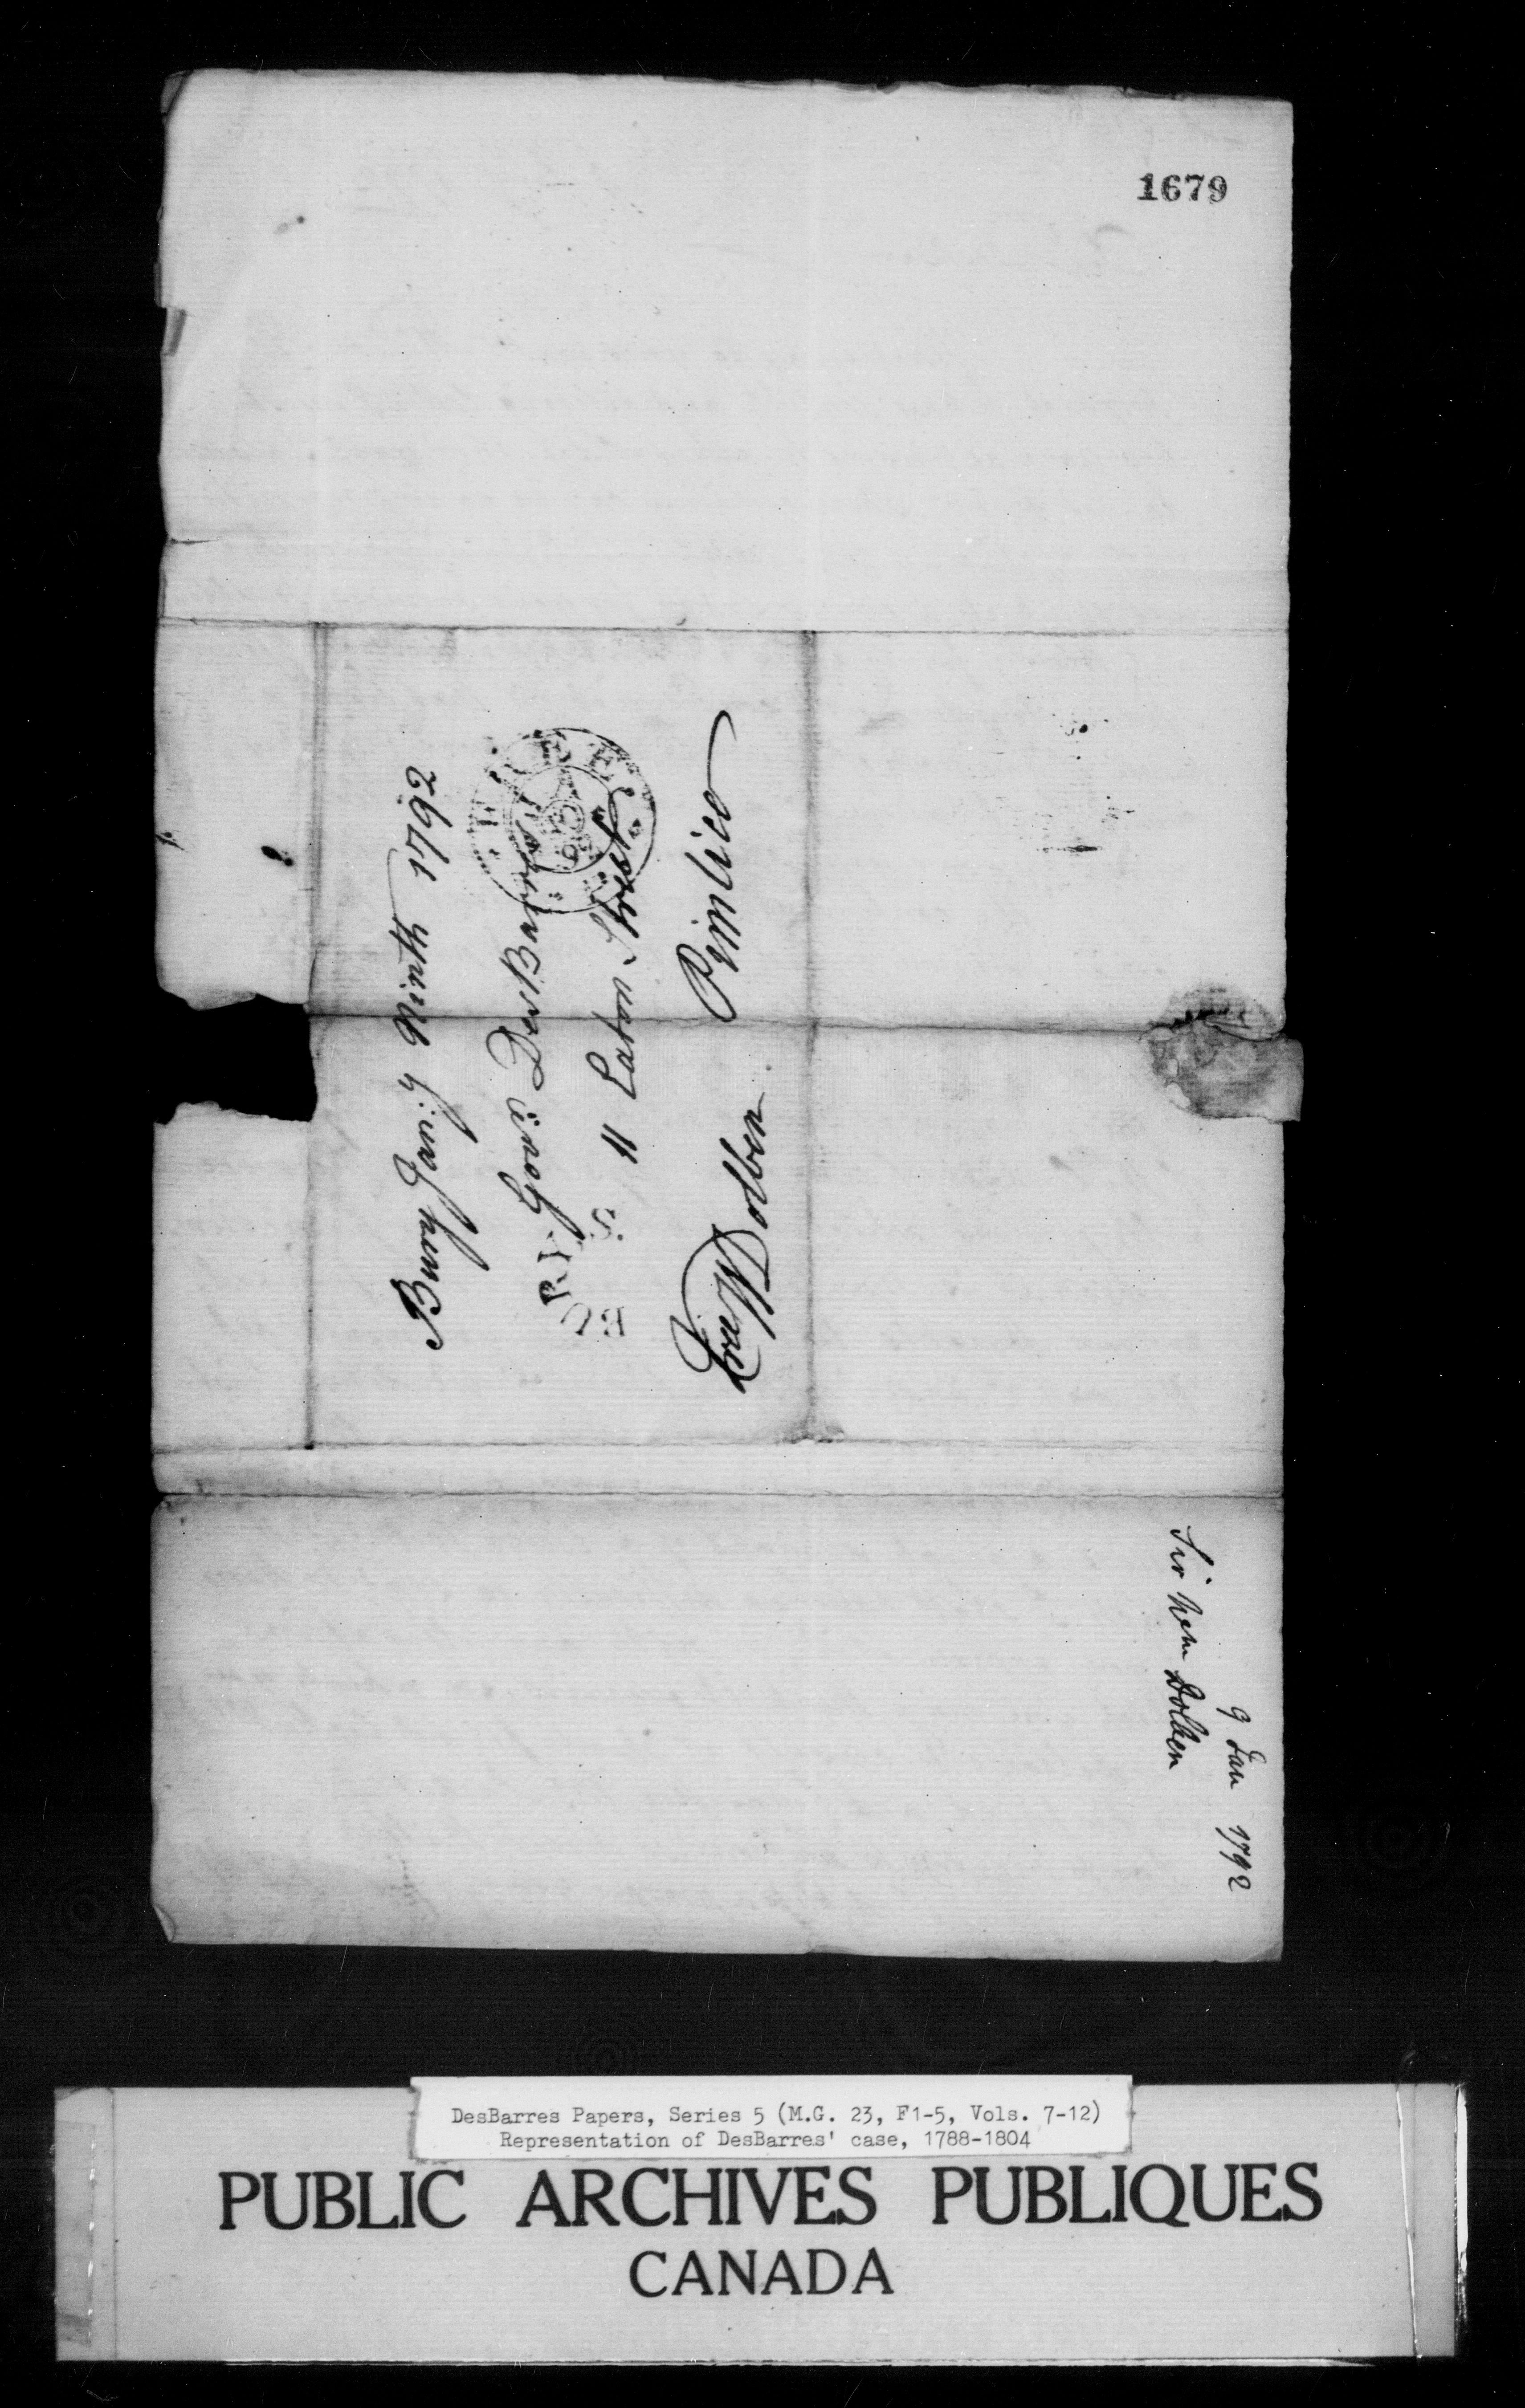 1679
Bury Jan:y Ninth 1792
Gov: DesBarres
11 Eaton Street
Pimlico
W Dolben
FREE
BURY S.
Sir Wm Dolben
9 Jan 1792
DesBarres Papers, Series 5 (M.G. 23, F1-5, Vols. 7-12)
Representation of DesBarres' case, 1788-1804
PUBLIC ARCHIVES PUBLIQUES
CANADA